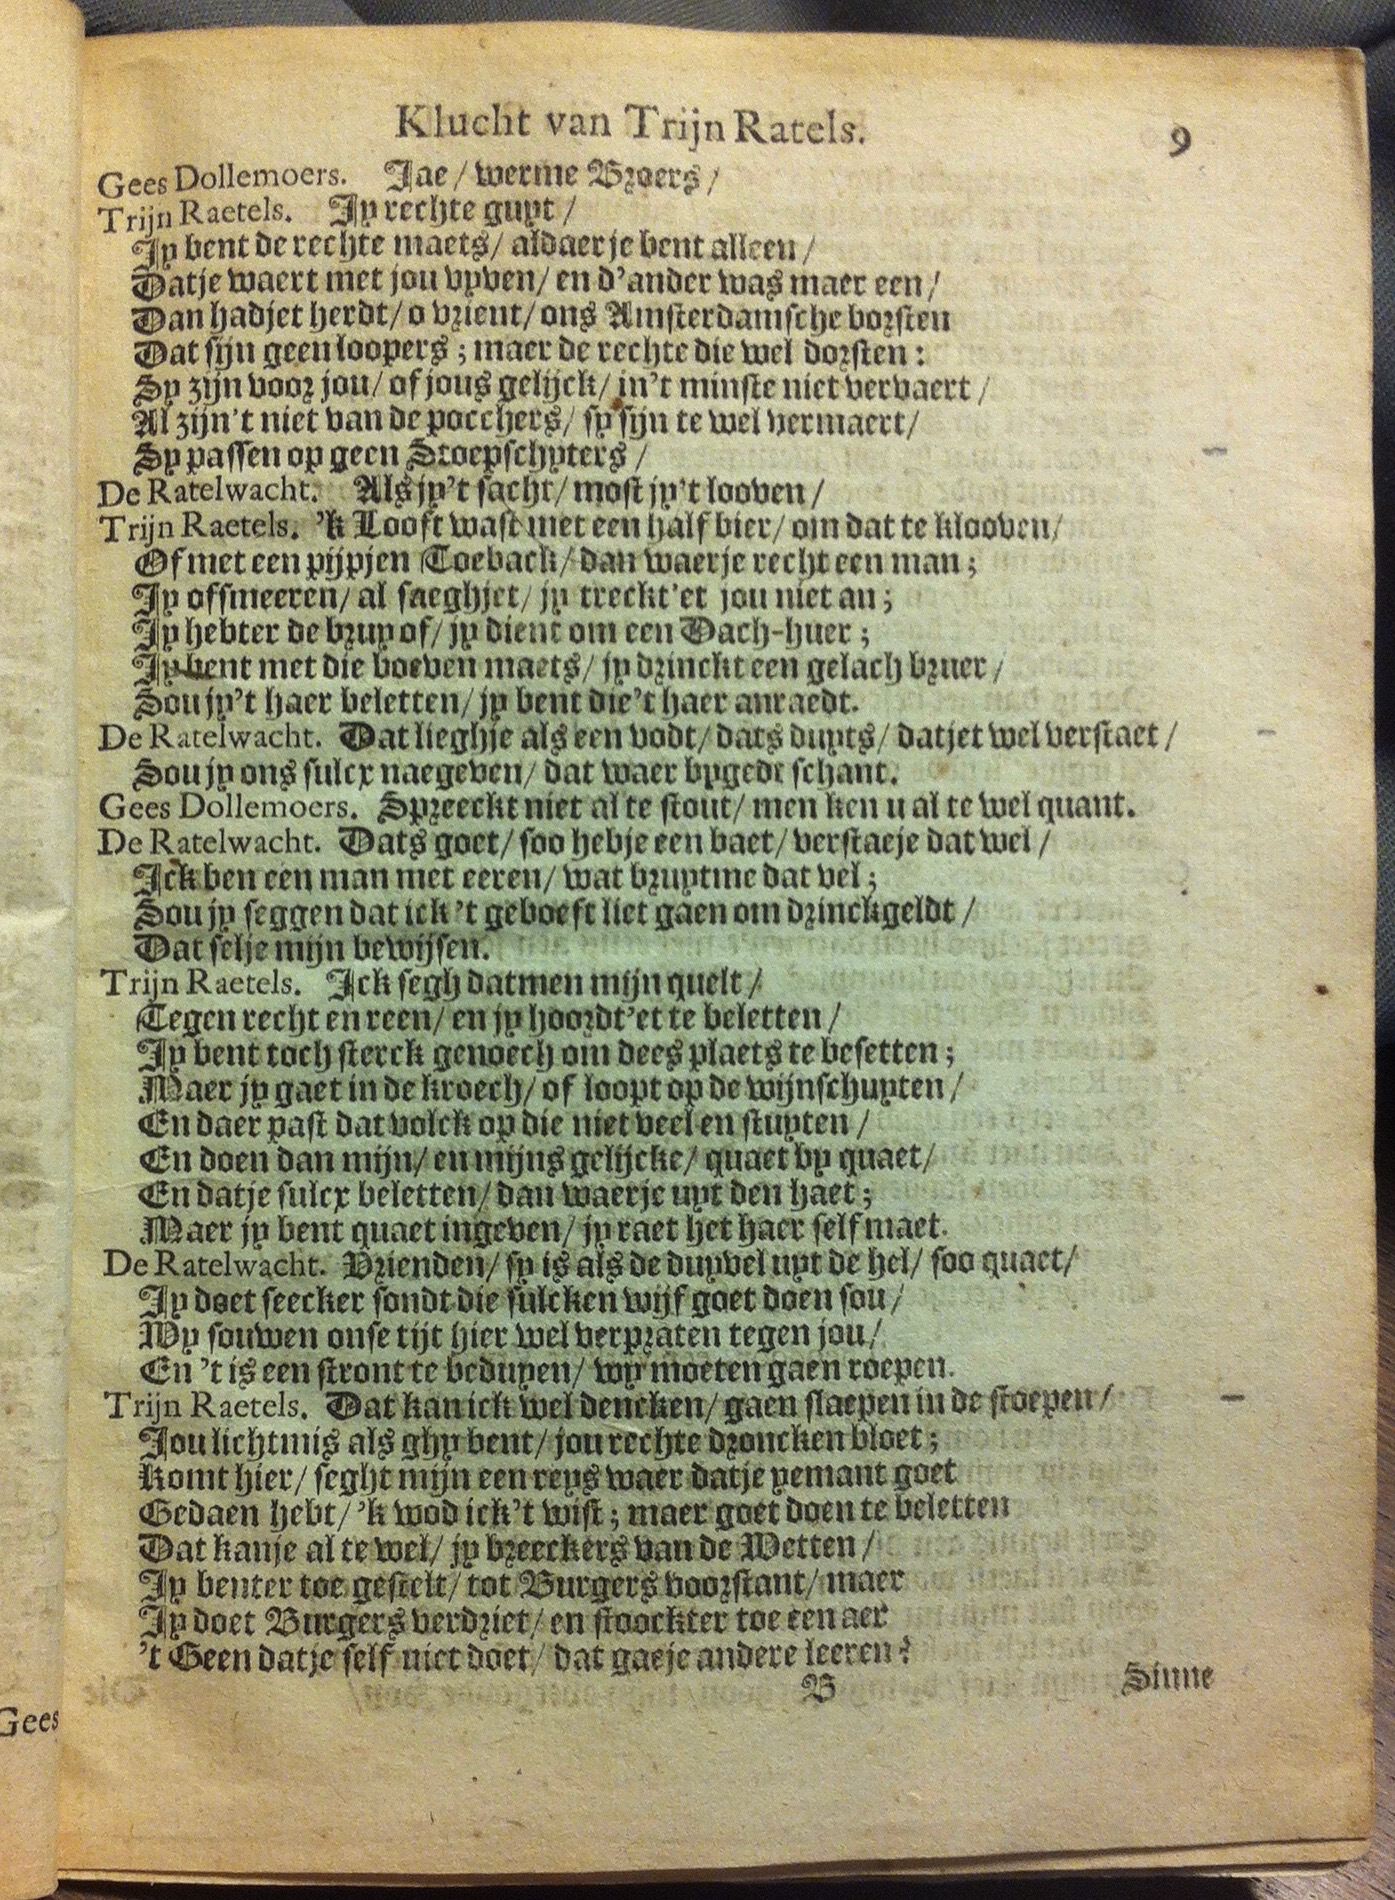 Klucht van Trijn Ratels. 9
Gees Dollemoers. Jae / werme Broers /
Trijn Raetels. Jy rechte guyt /
Jy bent de rechte maets / aldaer je bent alleen /
Datje waert met jou vyven / en d'ander was maer een /
Dan hadjet herdt / o vrient / ons Amsterdamsche borsten
Dat sijn geen loopers ; maer de rechte die wel dorsten :
Sy zijn voor jou / of jous gelijck / in't minste niet vervaert /
Al zijn't niet van de pocchers / sy sijn te wel vermaert /
Sy passen op geen Stoepschyters /
De Ratelwacht. Als jy't sacht / most jy't looven /
Trijn Raetels. 'k Looft wast met een half bier / om dat te klooven /
Of met een pijpjen Toeback / dan waerje recht een man ;
Jy offmeeren / al saeghjet / jy treckt'et jou niet an ;
Jy hebter de bruy of / jy dient om een Dach-huer ;
Jy bent met die boeven maets / jy drinckt een gelach bruer /
Sou jy't haer beletten / jy bent die't haer anraedt.
De Ratelwacht. Dat lieghje als een vodt / dats duyts / datjet wel verstaet /
Sou jy ons sulcx naegeven / dat waer bygedt schant.
Gees Dollemoers. Spreeckt niet al te stout / men ken u al te wel quant.
De Ratelwacht. Dats goet / soo hebje een baet / verstaeje dat wel /
Ick ben een man met eeren / wat bruytme dat vel ;
Sou jy seggen dat ick 't geboeft liet gaen om drinckgeldt /
Dat selje mijn bewijsen.
Trijn Raetels. Ick segh datmen mijn quelt /
Tegen recht en reen / en jy hoordt'et te beletten /
Jy bent toch sterck genoech om dees plaets te besetten ;
Maer jy gaet in de kroech / of loopt op de wijnschuyten /
En daer past dat volck op die niet veel en stuyten /
En doen dan mijn / en mijns gelijcke / quaet by quaet /
En datje sulcx beletten / dan waerje uyt den haet ;
Maer jy bent quaet ingeven / jy raet het haer self maet.
De Ratelwacht. Vrienden / sy is als de duyvel uyt de hel / soo quaet /
Jy doet seecker sondt die sulcken wijf goet doen sou /
Wy souwen onse tijt hier wel verpraten tegen jou /
En 't is een stront te beduyen / wy moeten gaen roepen.
Trijn Raetels. Dat kan ick wel dencken / gaen slaepen in de stoepen /
Jou lichtmis als ghy bent / jou rechte droncken bloet ;
Komt hier / seght mijn een reys waer datje yemant goet
Gedaen hebt / 'k wod ick't wist ; maer goet doen te beletten
Dat kanje al te wel / jy breeckers van de Wetten /
Jy benter toe gestelt / tot Burgers voorstant / maer
Jy doet Burgers verdriet / en stoockter toe een aer
't Geen datje self niet doet / dat gaeje andere leeren ?
B Sinne
Gees